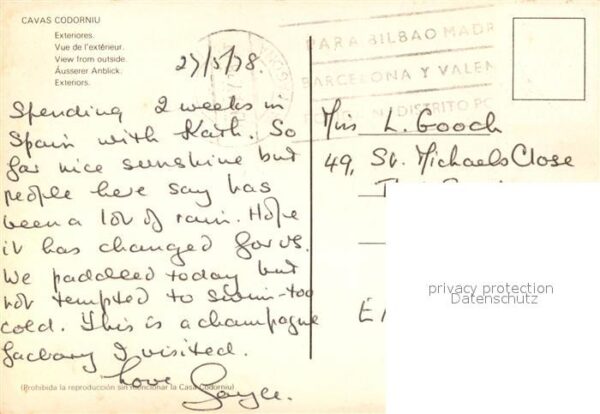 CAVAS CODORNIU
Exteriores.
Vue de l'extérieur.
View from outside.
Äusserer Anblick.
Exteriors.
27/5/78.
PARA BILBAO MADR
BARCELONA Y VALEN
DISTRITO PO
Spending 2 weeks in
Spain with Kath. So
far nice sunshine but
people here say has
been a lot of rain. Hope
it has changed for us.
We paddled today but
not tempted to swim - too
cold. This is a champagne
factory I visited.
Love Joyce.
(Prohibida la reproducción sin mencionar la Casa Codorniu)
Miss L. Gooch
49, St. Michaels Close
E
privacy protection
Datenschutz